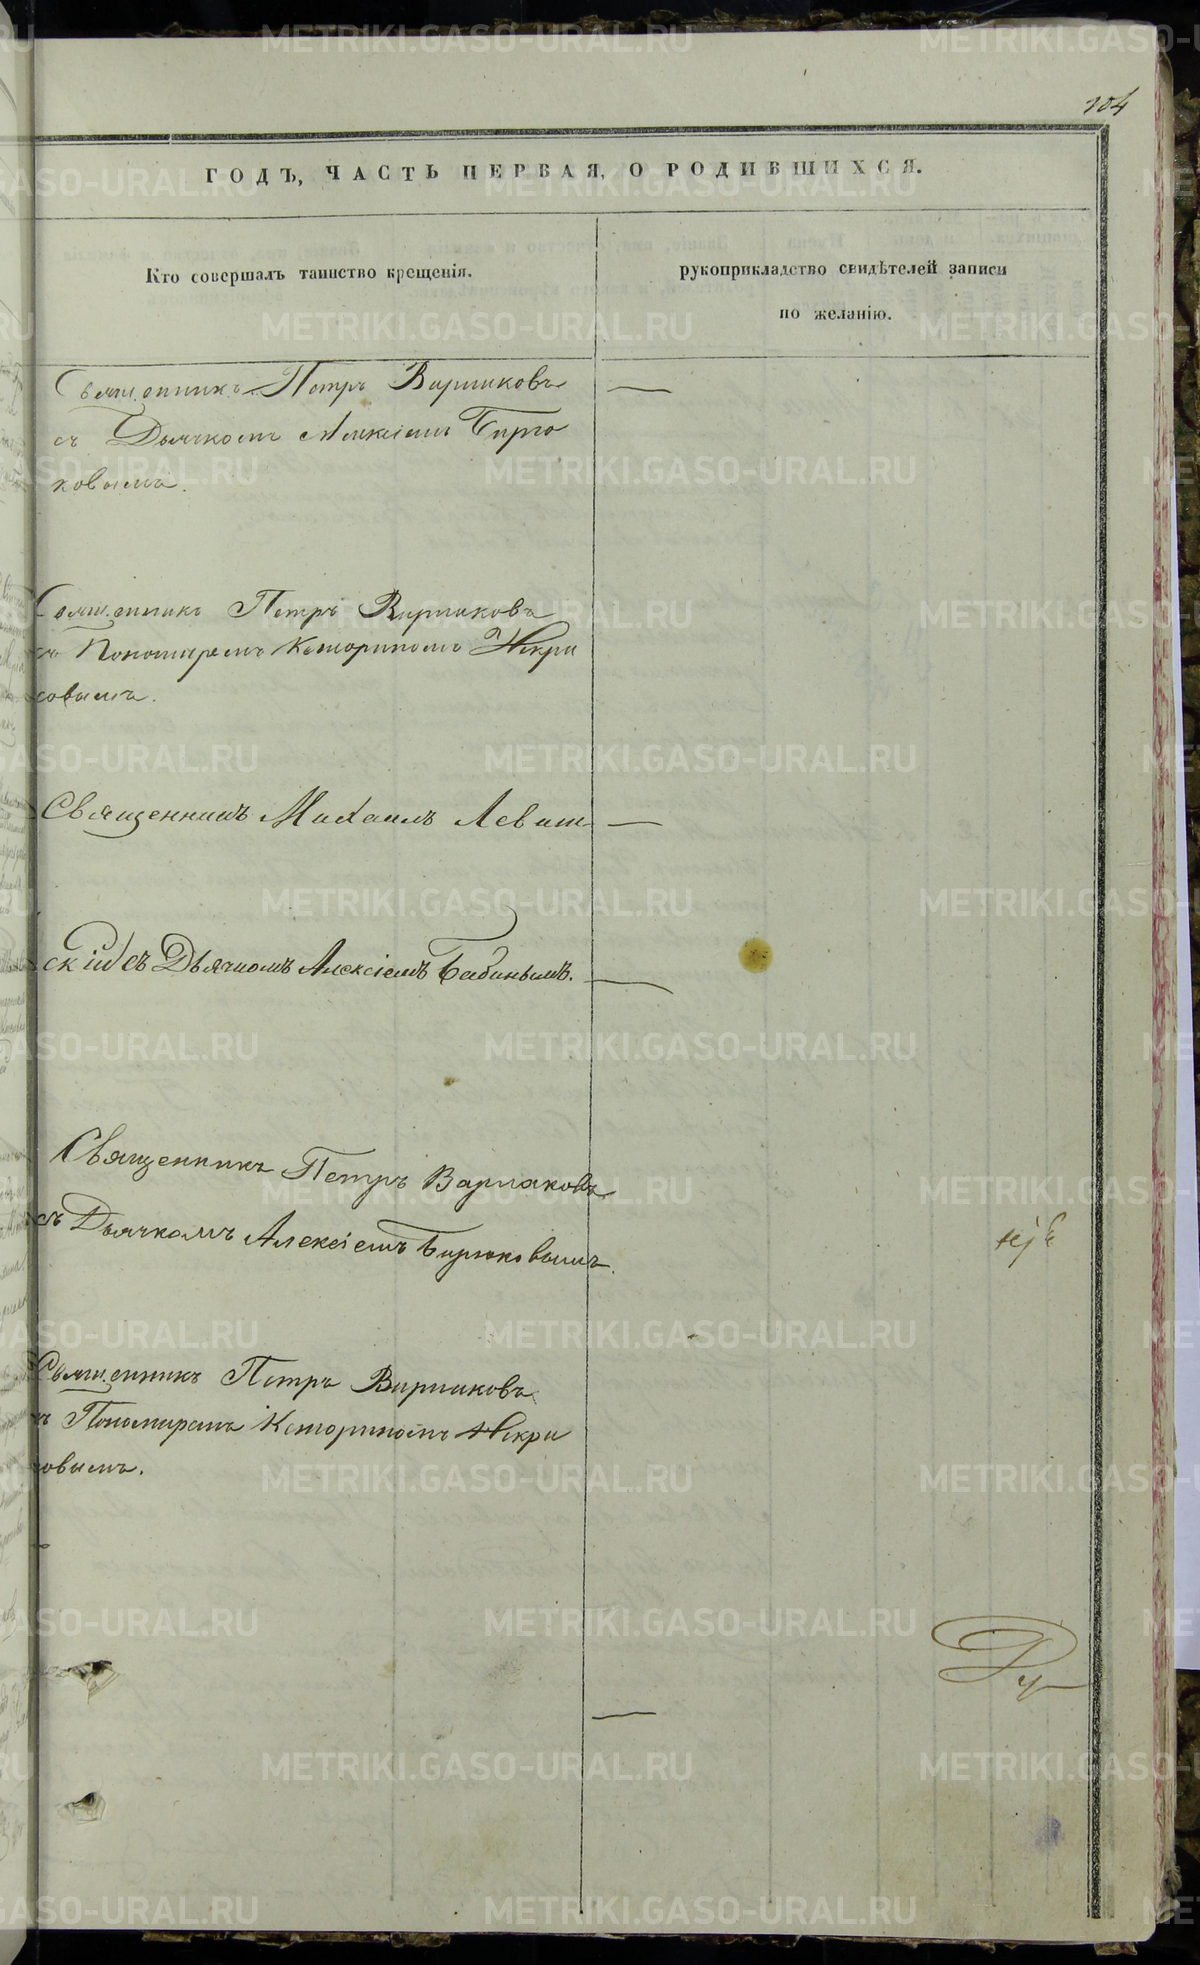 104
ГОДЪ, ЧАСТЬ ПЕРВАЯ, О РОДИВШИХСЯ.
Кто совершалъ таинство крещенія.
рукоприкладство свидѣтелей записи
по желанію.
Священникъ Петръ Варлаковъ
съ Дьячкомъ Алексіемъ Бирю
ковымъ.
Священникъ Петръ Варлаковъ
съ Пономаремъ Некра
совымъ.
Священникъ Михаилъ Левит
скій съ Дьячкомъ Алексіемъ Бабинымъ.
Священникъ Петръ Варлаковъ
съ Дьячкомъ Алексіемъ Бирюковымъ.
Священникъ Петръ Варлаковъ
съ Пономаремъ Некра
совымъ.
METRIKI.GASO-URAL.RU